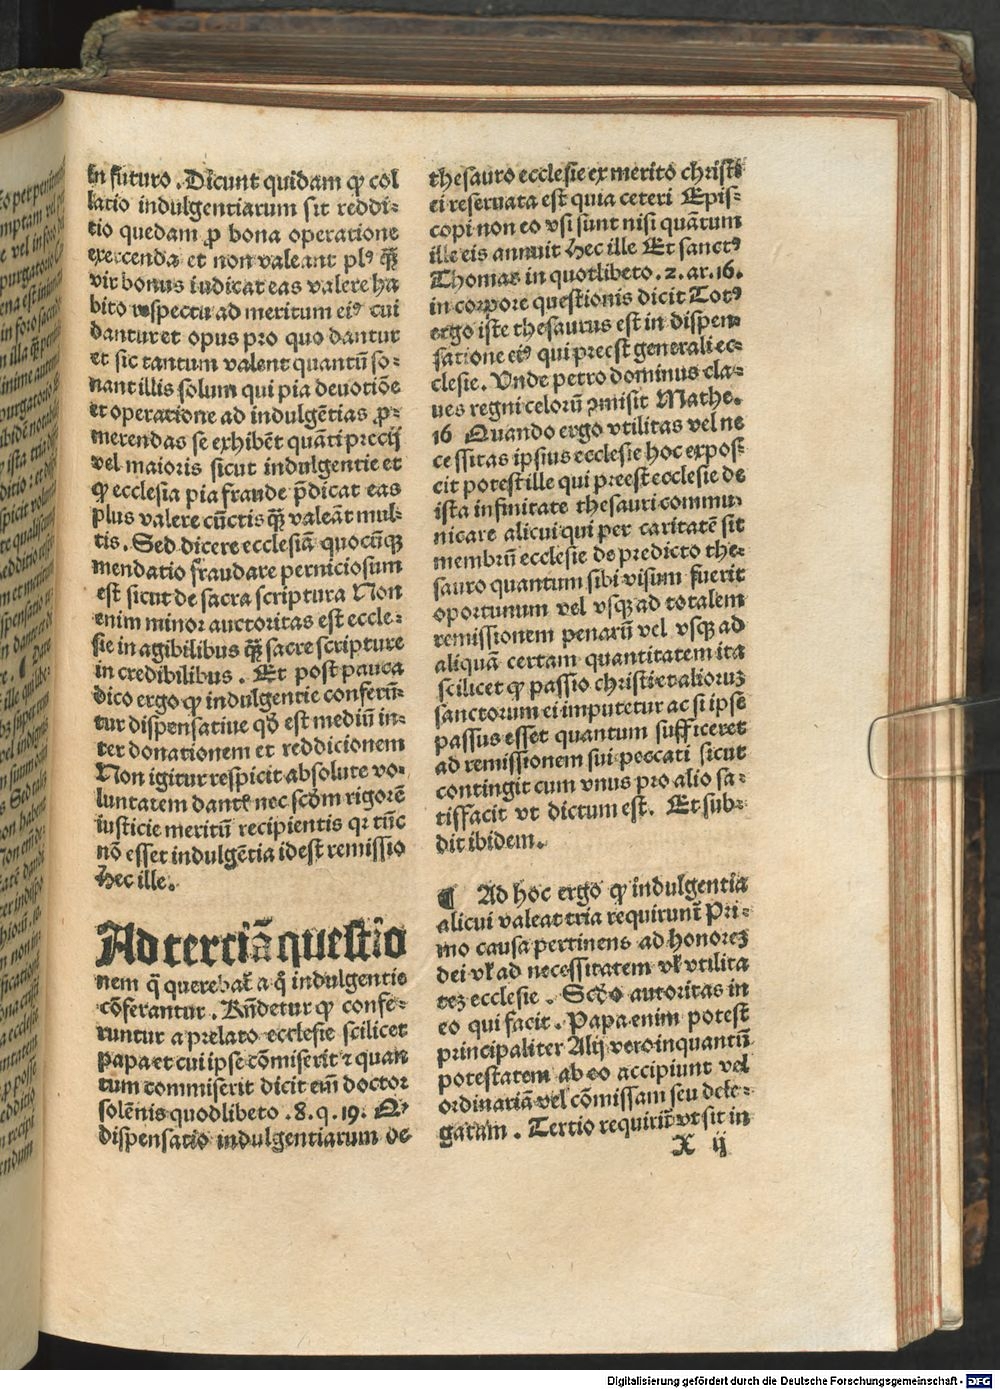 in futuro . Dicunt quidam ꝙ col
latio indulgentiarum sit reddi⸗
tio quedam ꝓ bona operatione
exercenda et non valeant plꝰ q̄ꝫ
vir bonus iudicat eas valere ha
bito respectu ad meritum eiꝰ cui
dantur et opus pro quo dantur
et sic tantum valent quantū so⸗
nant illis solum qui pia deuotiōe
et operatione ad indulgētias ꝓ⸗
merendas se exhibēt quāti precij
vel maioris sicut indulgentie et
ꝙ ecclesia pia fraude p̄dicat eas
plus valere cūctis q̄ꝫ valeāt mul⸗
tis . Sed dicere ecclesiā quocūqꝫ
mendatio fraudare perniciosum
est sicut de sacra scriptura Non
enim minor auctoritas est eccle⸗
sie in agibilibus q̄ꝫ sacre scripture
in credibilibus . Et post pauca
dico ergo ꝙ indulgentie conferū⸗
tur dispensatiue qð est mediū in⸗
ter donationem et reddicionem
Non igitur respicit absolute vo⸗
luntatem dantꝭ nec scðm rigorē
iusticie meritū recipientis qꝛ tūc
nō esset indulgētia idest remissio
Hec ille .
Ad terciā questio
nem q̄ querebat̄ a q̊ indulgentie
cōferantur . Rn̄detur ꝙ confe⸗
runtur a prelato ecclesie scilicet
papa et cui ipse cōmiserit ⁊ quan
tum commiserit dicit em̄ doctor
solēnis quodlibeto . 8 . q . 19 . Qꝭ
dispensatio indulgentiarum de
thesauro ecclesie ex merito christi
ei reseruata est quia ceteri Epis⸗
copi non eo vsi sunt nisi quātum
ille eis annuit Hec ille Et sanctꝰ
Thomas in quotlibeto . 2 . ar . 16 .
in corpore questionis dicit Totꝰ
ergo iste thesaurus est in dispen⸗
satione eiꝰ qui preest generali ec⸗
clesie . Vnde petro dominus cla⸗
ues regni celorū ꝓmisit Mathe .
16 Quando ergo vtilitas vel ne
cessitas ipsius ecclesie hoc expos⸗
cit potest ille qui preest ecclesie de
ista infinitate thesauri commu⸗
nicare alicui qui per caritatē sit
membrū ecclesie de predicto the⸗
sauro quantum sibi visum fuerit
oportunum vel vsqꝫ ad totalem
remissionem penarū vel vsqꝫ ad
aliquā certam quantitatem ita
scilicet ꝙ passio christi et alioruꝫ
sanctorum ei imputetur ac si ipse
passus esset quantum sufficeret
ad remissionem sui peccati sicut
contingit cum vnus pro alio sa⸗
tisfacit vt dictum est . Et sub⸗
dit ibidem .
¶ Ad hoc ergo ꝙ indulgentia
alicui valeat tria requirunt̄ Pri⸗
mo causa pertinens ad honoreꝫ
dei vl̓ ad necessitatem vl̓ vtilita
teꝫ ecclesie . Scðo autoritas in
eo qui facit . Papa enim potest
principaliter Alij vero inquantū
potestatem ab eo accipiunt vel
ordinariā vel cōmissam seu dele⸗
gatam . Tertio requirit̄ vt sit in
X ij
Digitalisierung gefördert durch die Deutsche Forschungsgemeinschaft - DFG